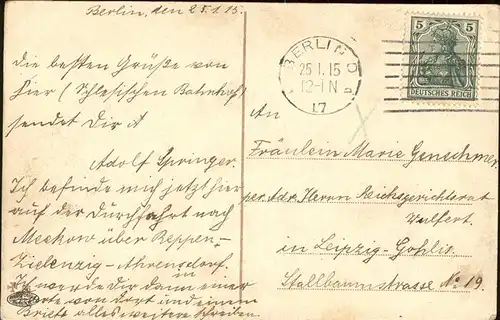 Berlin, den 25.1.15.
Die besten Grüße von
hier (Schlesischen Bahnhof)
sendet Dir
Adolf Springer.
Ich befinde mich jetzt hier
auf der Durchfahrt nach
Meekow über Reppen-
Zielenzig-Ahrensdorf.
Ich werde Dir dann in einer
Karte von dort und in einem
Briefe alles weitere schreiben.
BERLIN O
25.1.15
12-1N
17
5 5
DEUTSCHES REICH
An
Fräulein Marie Genschmer
per Adr. Herrn Reichsgerichtsrat
Wulfert.
in Leipzig-Gohlis.
Stallbaumstrasse No 19.